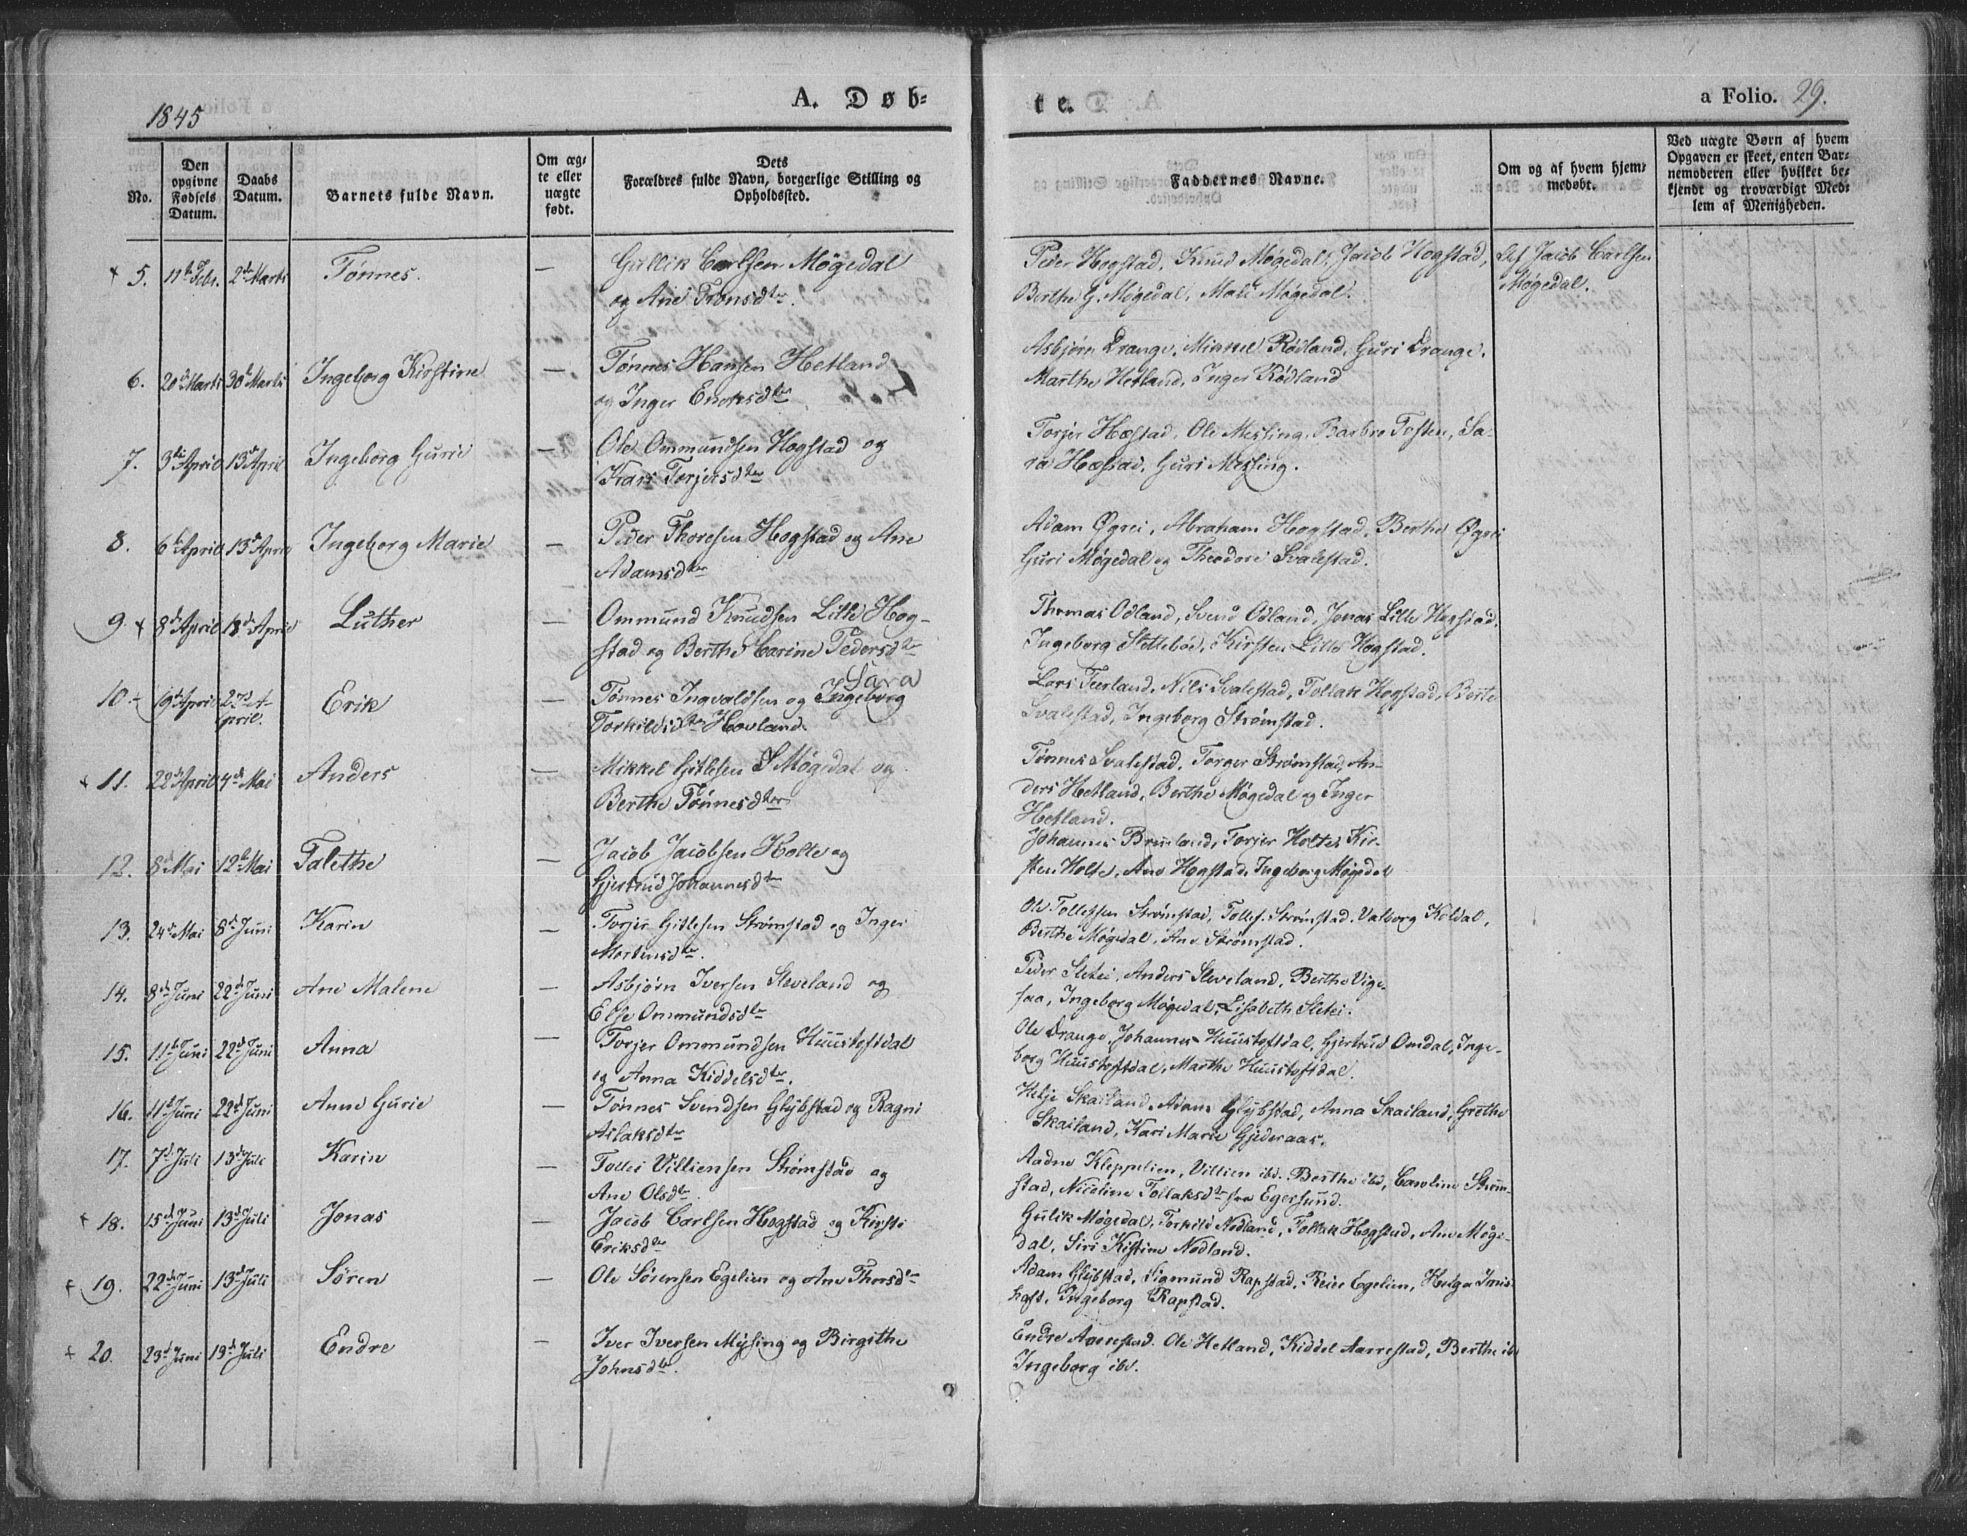 1845
A. Døb-
te.
a Folio. 29.
No.
Den opgivne Fødsels Datum.
Daabs Datum.
Barnets fulde Navn.
Om æg-te eller uægte født.
Dets Forældres fulde Navn, borgerlige Stilling og Opholdssted.
Faddernes Navne.
Om og af hvem hjem-medøbt.
Ved uægte Børn af hvem Opgaven er skeet, enten Bar-nemoderen eller hvilket be-kjendt og troværdigt Med-lem af Menigheden.
+ 5. 11te Febr. 2den Marts Tønnes. — Gullik Carlsen Møgedal
og Ane Tronsdter.
Peder Hogstad, Knud Møgedal, Jacob Hogstad,
Berthe G. Møgedal, Mali Møgedal.
Jacob Carlsen
Møgedal.
6. 20de Marts 30te Marts Ingeborg Kirstine — Tønnes Hansen Hetland
og Inger Endresdter
Asbjørn Drange, Mikkel Rødland, Guri Drange,
Marthe Hetland, Inger Rødland
7. 3die April 13de April Ingeborg Gurie — Ole Ommundsen Hogstad og
Kari Torjersdter
Torjer Hæstad, Ole Messing, Barbro Toften, Sa-
ra Hæstad, Guri Messing.
8. 6te April 13de April Ingeborg Marie — Peder Thoresen Hogstad og Ane
Adamsdter
Adam Øgrei, Abraham Hogstad, Berthe Øgrei
Guri Møgedal og Theodore Svalestad.
9. + 8de April 13de April Luther — Ommund Knudsen Lille Hog-
stad og Berthe Carine Pedersdter
Thomas Odland, Svend Odland, Jonas Lille Hogstad,
Ingeborg Slettebød, Kirsten Lille Hogstad.
10. 19de April 27de A-
pril. Erik — Tønnes Ingvaldsen og Ingeborg
Sara
Torkildsdter Hovland.
Lars Teerland, Nils Svalestad, Tollak Hogstad, Berte
Svalestad, Ingeborg Strømstad.
+ 11. 22de April 4de Mai Anders — Mikkel Gitlesen S Møgedal og
Berthe Tønnesdter
Tønnes Svalestad, Torger Strømstad, An-
ders Hetland, Berthe Møgedal og Inger
Hetland.
12. 8de Mai 12te Mai Talethe — Jacob Jacobsen Holte og
Gjertrud Johannesdter
Johannes Bruland, Torjer Holte, Kir-
sten Holte, Ane Hogstad, Ingeborg Møgedal
13. 24de Mai 8de Juni Karin — Torjer Gitlesen Strømstad og Inger
Mortensdter.
Ole Tollefsen Strømstad, Tollef. Strømstad. Valborg Koldal,
Berthe Møgedal, Ane Strømstad.
14. 8de Juni 22de Juni Ane Malene — Asbjørn Iversen Sleveland og
Else Ommundsdter
Peder Sletei, Anders Sleveland, Berthe Vige-
saa, Ingeborg Møgedal, Lisabeth Sletei.
15. 11te Juni 22de Juni Anna — Torjer Ommundsen Huustoftdal
og Anna Kiddelsdter.
Ole Drange, Johannes Huustoftdal, Gjertrud Omdal, Inge-
borg Huustoftdal, Marthe Huustoftdal.
16. 11te Juni 22de Juni Anne Gurie — Tønnes Svendsen Glybstad og Ragni
Aslaksdter
Helje Skailand, Adam Glybstad, Anna Skailand, Grethe
Skailand, Kari Marie Gjederaas.
17. 7de Juli 13de Juli Karin — Tollei Villiensen Strømstad og
Ane Olsdter.
Aadne Kleppelien, Villien ibd. Berthe ibd, Caroline Strøm-
stad, Nicoline Tollaksdter fra Egersund.
+ 18. 15de Juni 13de Juli Jonas — Jacob Carlsen Hogstad og Kirsti
Eriksdter
Gulik Møgedal, Torkild Nodland, Tollak Hogstad, Ane Møge-
dal, Siri Kistine Nodland.
+ 19. 22de Juni 13de Juli Søren — Ole Sørensen Egelien og Ane Thorsdter
Adam Glybstad, Sigmund Rapstad, Reier Egelien, Helga
Ingeborg Rapstad.
+ 20. 23de Juni 19de Juli Endre — Iver Iversen Mysing og Birgithe
Johnsdter.
Endre Aarrestad. Ole Hetland, Kiddel Aarrestad, Berthe ibd
Ingeborg ibd.